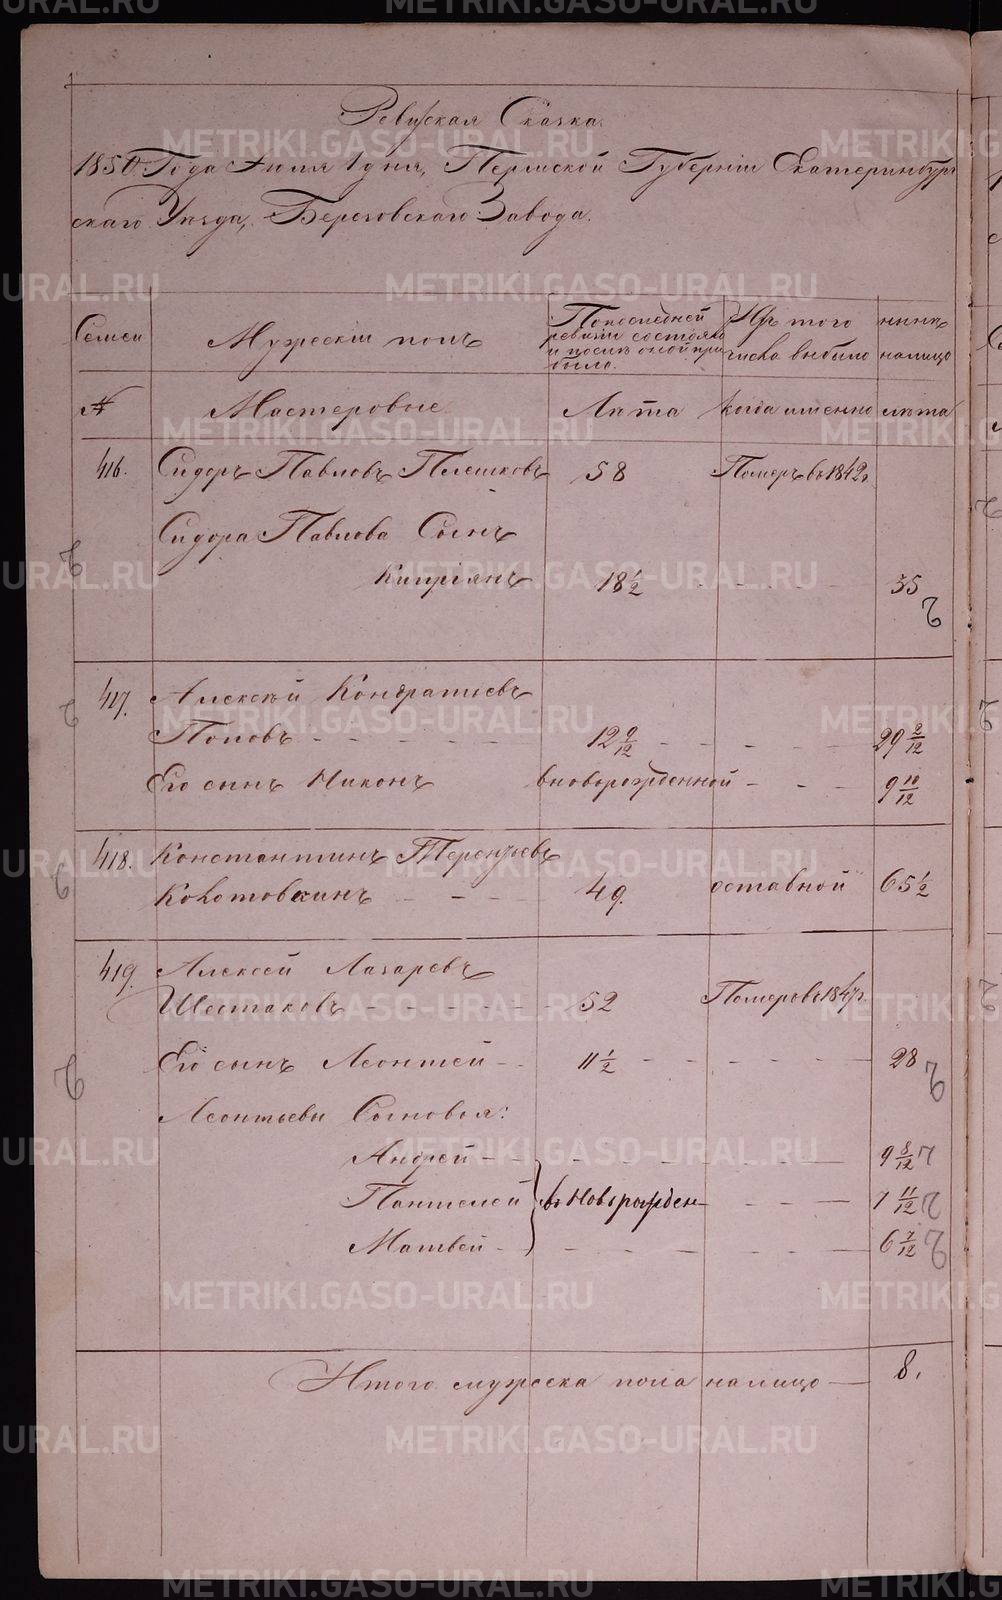 Ревизская Сказка.
1850 Года Июля 1 дня, Пермской Губернiи Екатеринбург
скаго Уѣзда, Березовскаго Завода.
Семьи
Мужескiй полъ
По последней
ревизiи состояло
и послѣ оной при
было.
Изъ того
числа выбыло
нынѣ
налицо
№
Мастеровые
Лѣта
когда именно
лѣта
416. Сидоръ Павловъ Плешковъ 58 Померъ въ 1842г
Сидора Павлова Сынъ
Кипрiянъ 18 1/2 - - - 35
417. Алексѣй Кондратьевъ
Поповъ - - - - - 12 9/12 - - - - 29 2/12
Его сынъ Никонъ вноворожденной - - - 9 10/12
418. Константинъ Терентьевъ
Кокотовкинъ - - - 49. отставной 65 1/2
419. Алексей Лазаревъ
Шестаковъ - - - - - 52 Померъ въ 1847г.
Его сынъ Леонтей - - 11 1/2 - - - - - 28
Леонтьевы Сыновья:
Андрей - - - - - - - - 9 8/12
Пантелей въ Новорожден - - - 1 11/12
Матвей - - - - - - - 6/12 7/12
Итого мужеска пола налицо — 8.
METRIKI.GASO-URAL.RU